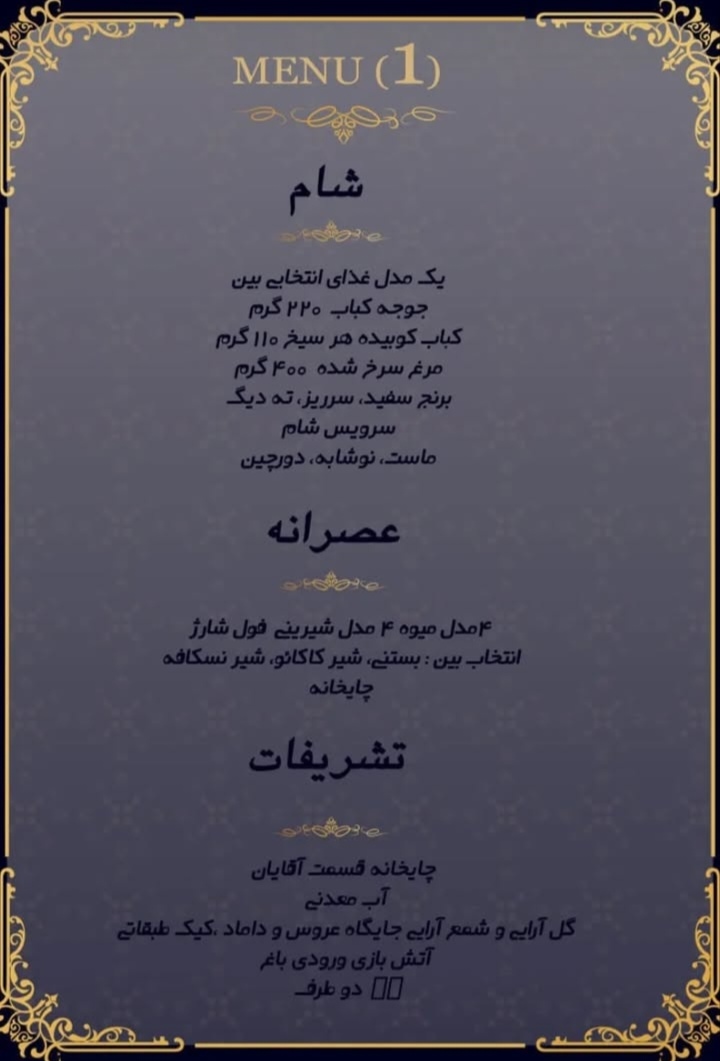 MENU (1)
شام
یک مدل غذای انتخابی بین
جوجه کباب ۲۲۰ گرم
کباب کوبیده هر سیخ ۱۱۰ گرم
مرغ سرخ شده ۴۰۰ گرم
برنج سفید، سرریز، ته دیگ
سرویس شام
ماست، نوشابه، دورچین
عصرانه
۴مدل میوه ۴ مدل شیرینی فول شارژ
انتخاب بین : بستنی، شیر کاکائو، شیر نسکافه
چایخانه
تشریفات
چایخانه قسمت آقایان
آب معدنی
گل آرایی و شمع آرایی جایگاه عروس و داماد ،کیک طبقاتی
آتش بازی ورودی باغ
دو طرف